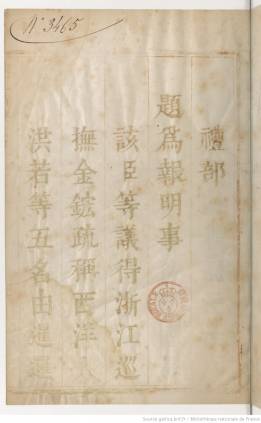 N° 3465
禮部
題爲報明事
該臣等議得浙江巡
撫金鋐疏稱西洋
洪若等五名由暹邏
Source gallica.bnf.fr / Bibliothèque nationale de France